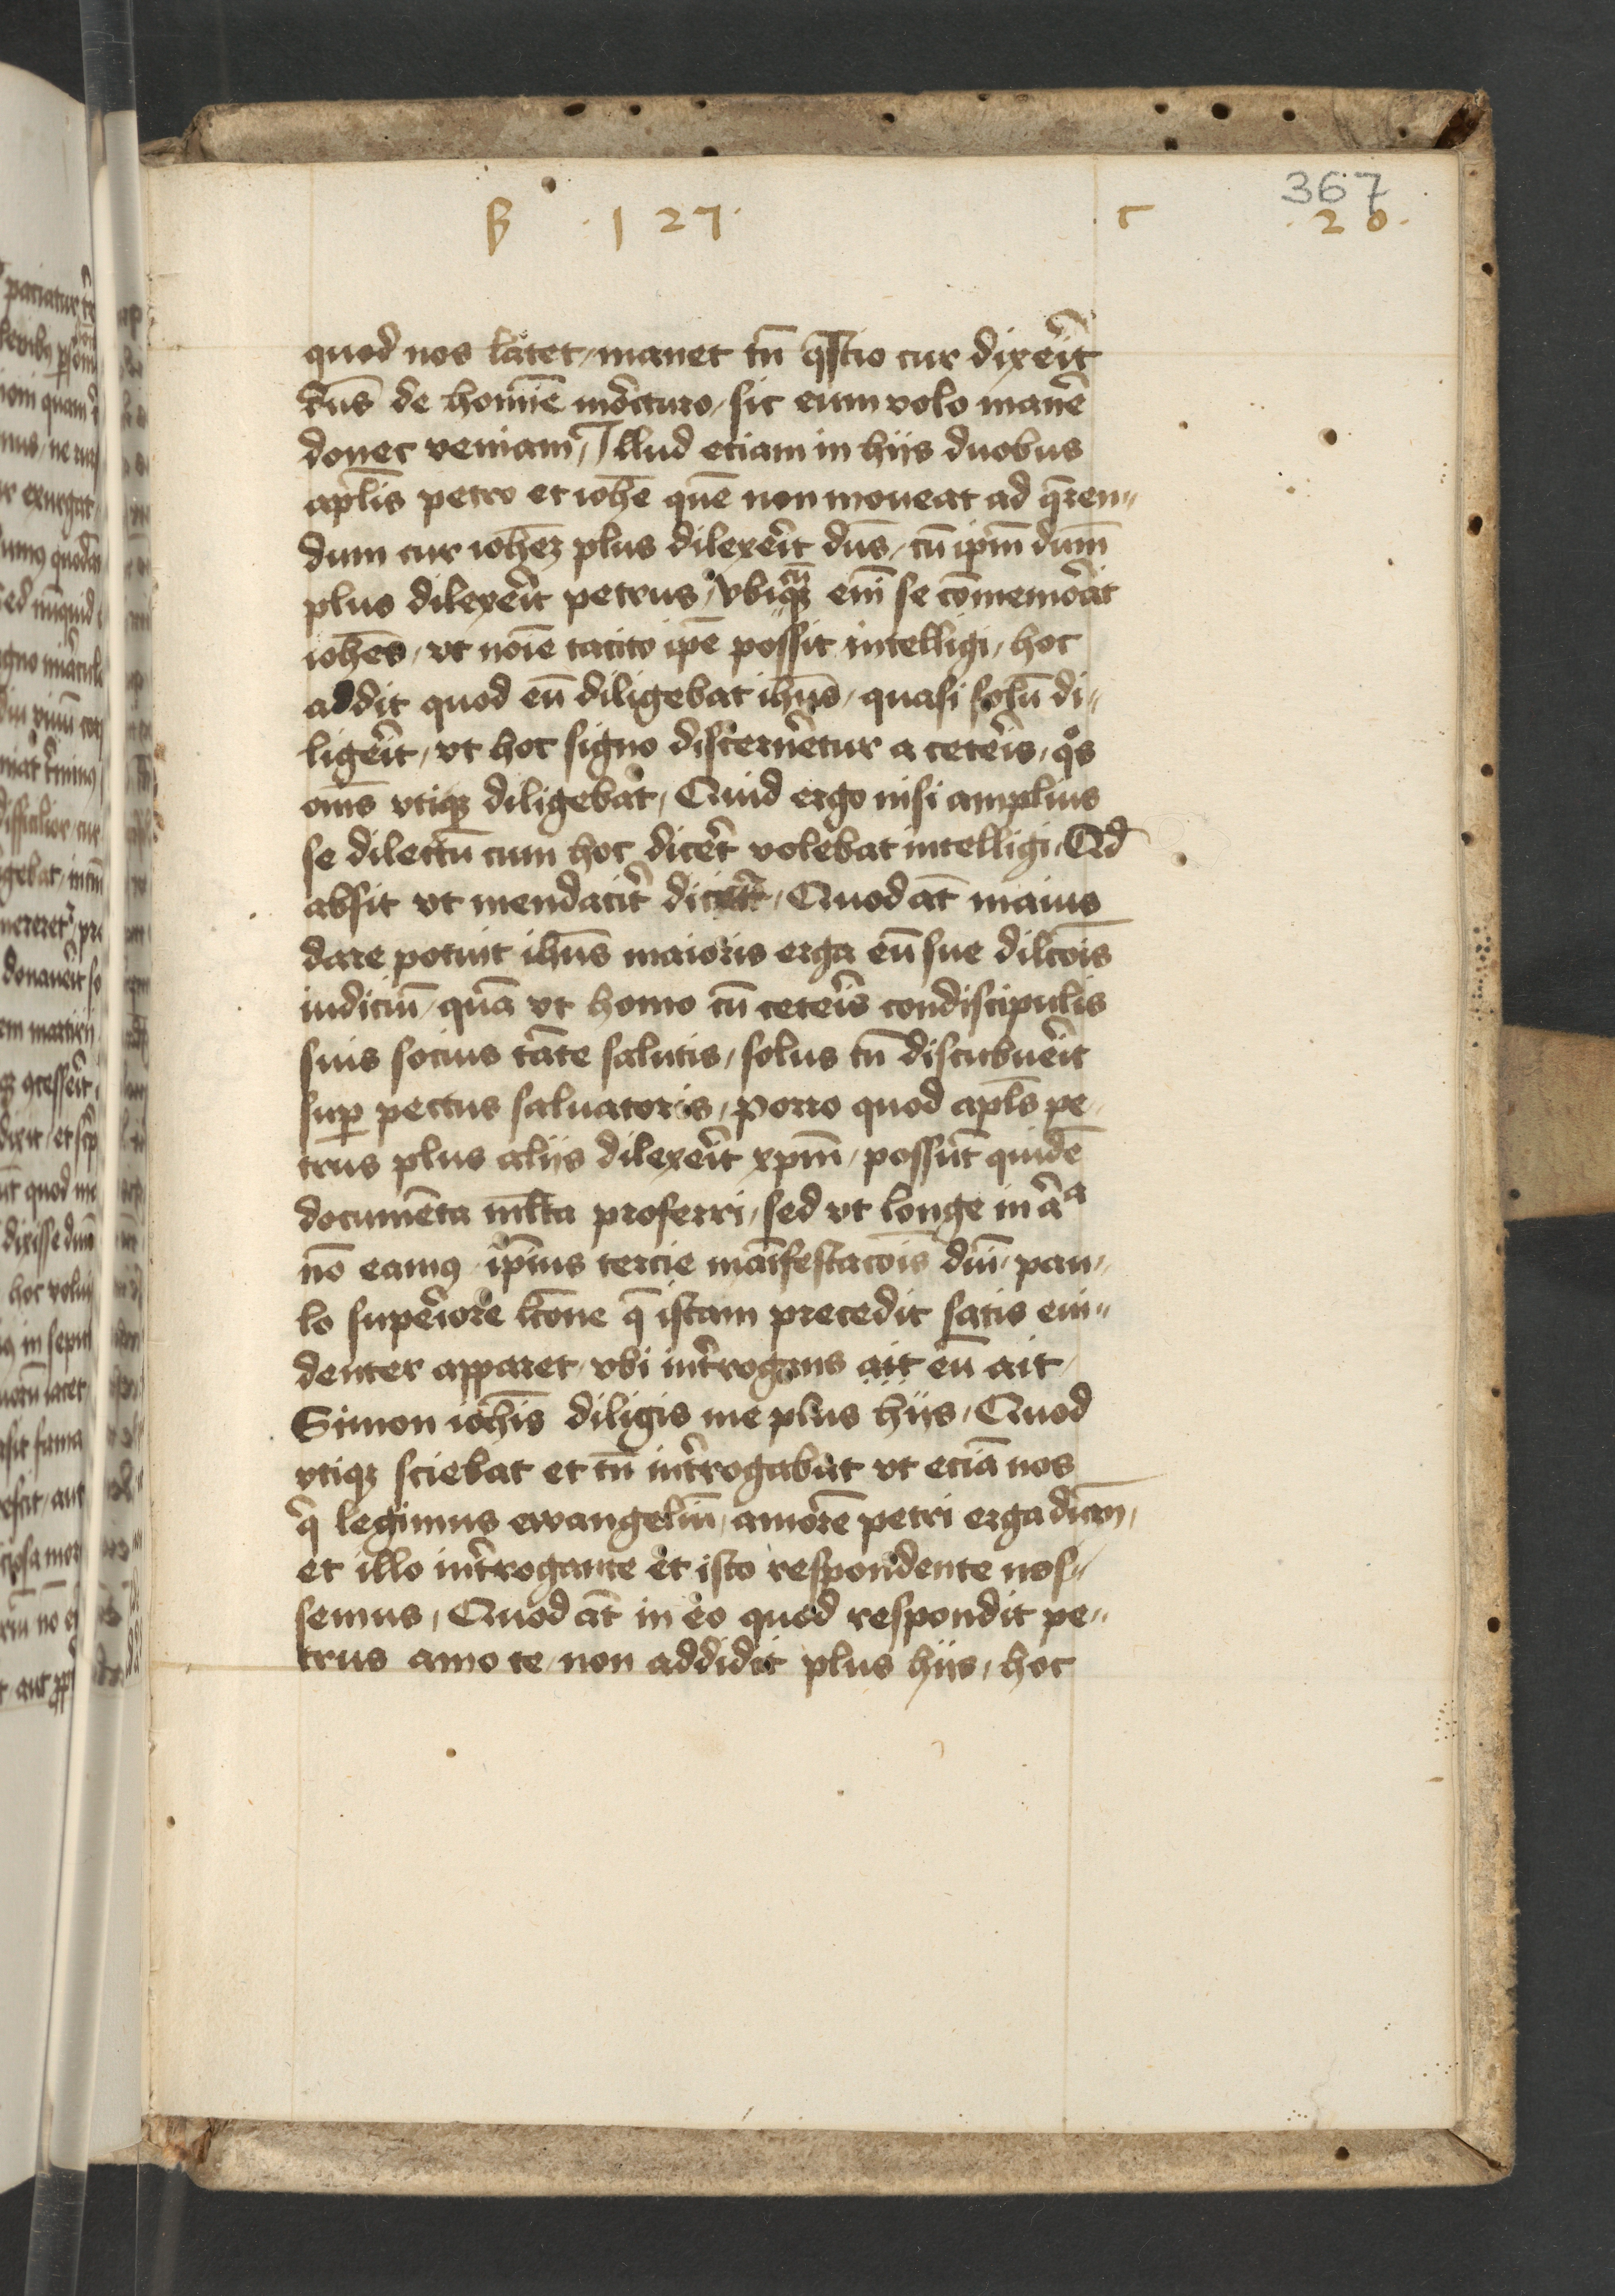 367
B · 127 · c · 20 ·
quod nos latet, manet tn̄ qͣstio cur dixeͥt
dn̄s de homīe moͥcturo, sic eum volo manē
donec veniam, Illud etiam in hijs duobus
apl̄is petro et ioh̄e quē non moueat ad q̄ren„
dum cur ioh̄ez plus dilexeͥt dn̄s, cū ip̄m dn̄m
plus dilexeͥt petrus, vbicūqꝫ em̄ se cōmemorat
ioh̄es, vt noīe tacito ip̄e possit intelligi, hoc
addit quod eū diligebat ih̄us, quasi solū di„
ligeͥt, vt hoc signo discerneretur a ceteͥis, qͦs
om̄s vtiqꝫ diligebat, Quid ergo nisi amplius
se dilectū cum hoc diceret volebat intelligi, Qd̄
absit vt mendaciter diceret, Quod at̄ maius
dare potuit ih̄us maioris erga eū sue dilc̄ois
iudiciū, quā vt homo cū ceteͥis condiscipulis
suis socius tāte salutis, solus tn̄ discubueͥt
suꝑ pectus saluatoris, Porro quod apl̄s pe„
trus plus alijs dilexeͥt xp̄m, possūt quidē
documēta ml̄ta proferri, sed vt longe in alͥa
nō eamꝰ ip̄ius tercie manīfestacōis dn̄i, pau„
lo supeͥiore lc̄one q̄ istam precedit satis eui„
denter apparet, vbi int̄rogans ait eū ait,
Simon ioh̄is diligis me plus hijs, Quod
vtiqꝫ sciebat et tn̄ int̄rogabat vt eciā nos
qͥ legimus ewangeliū, amorē petri erga dn̄m,
et illo int̄rogante et isto respondente nos„
semus, Quod at̄ in eo quod respondit pe„
trus amo te, non addidit plus hijs, hoc